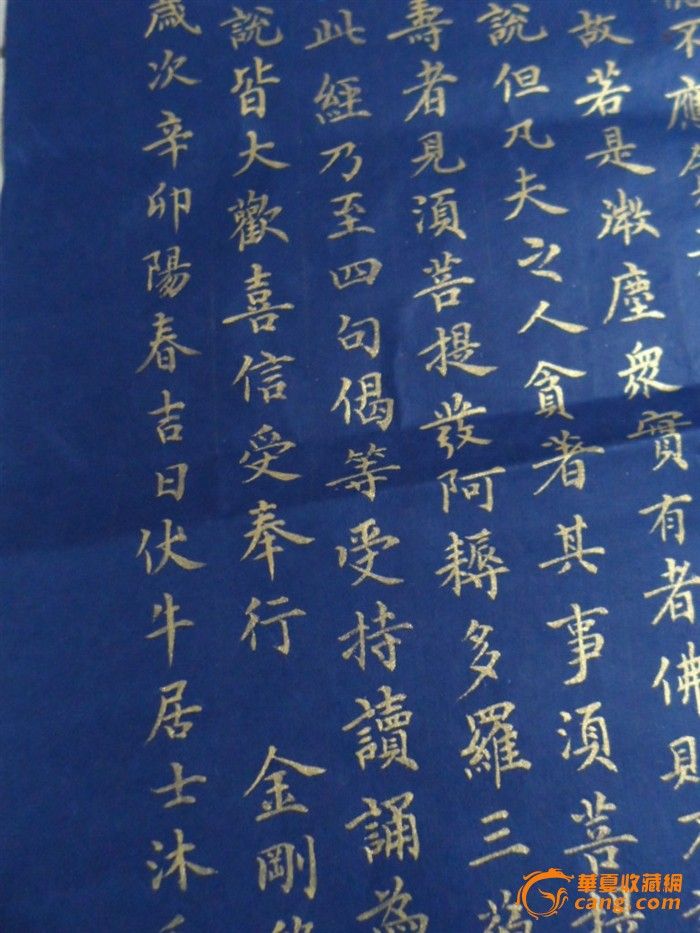 不應
故若是微塵衆實有者佛則不
說但凡夫之人貪著其事須菩提
壽者見須菩提發阿耨多羅三藐
此經乃至四句偈等受持讀誦為
說皆大歡喜信受奉行　金剛
歲次辛卯陽春吉日伏牛居士沐
華夏收藏網
cang.com